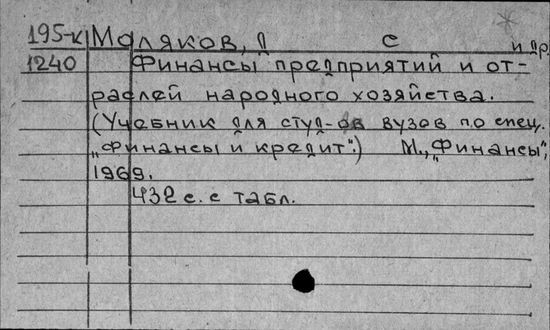 195-к Моляков, Д с и др.
1240 Финансы предприятий и от-
раслей народного хозяйства.
(Учебник для студ-ов вузов по спец.
„Финансы и кредит".) М., „Финансы",
1969.
432 с. с табл.